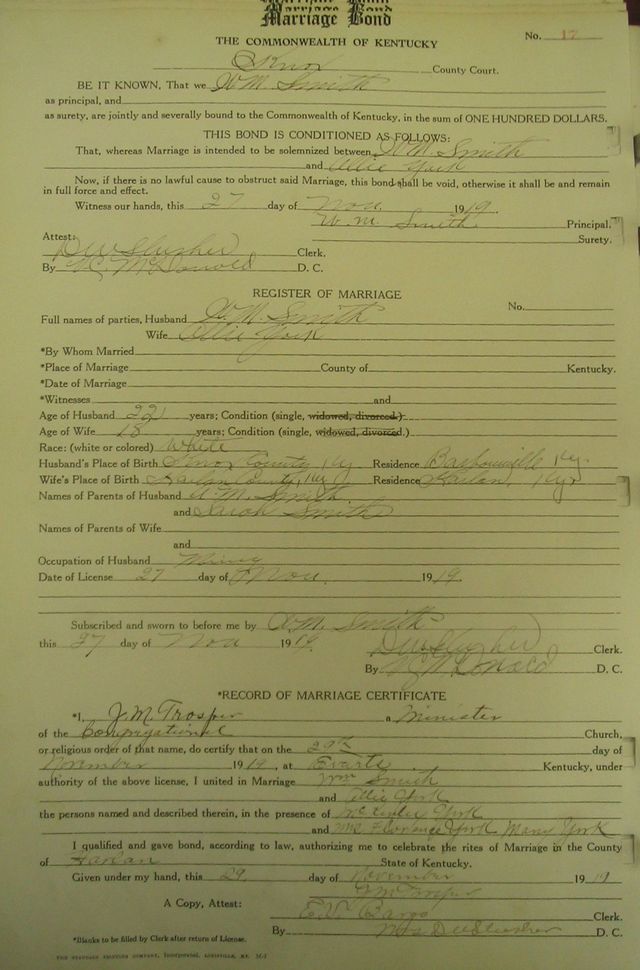 Marriage Bond
Marriage Bond
No. 17
THE COMMONWEALTH OF KENTUCKY
Knox County Court.
BE IT KNOWN, That we Wm Smith
as principal, and
as surety, are jointly and severally bound to the Commonwealth of Kentucky, in the sum of ONE HUNDRED DOLLARS.
THIS BOND IS CONDITIONED AS FOLLOWS:
That, whereas Marriage is intended to be solemnized between Wm Smith
and Allie York
Now, if there is no lawful cause to obstruct said Marriage, this bond shall be void, otherwise it shall be and remain
in full force and effect.
Witness our hands, this 27 day of Nov. 1919.
W. M. Smith Principal.
Attest: Surety.
D W Slusher Clerk,
By McDonald D. C.
REGISTER OF MARRIAGE
No.
Full names of parties, Husband Wm Smith
Wife Allie York
*By Whom Married
*Place of Marriage County of Kentucky.
*Date of Marriage
*Witnesses and
Age of Husband 22 years; Condition (single, widowed, divorced.)
Age of Wife 18 years; Condition (single, widowed, divorced.)
Race: (white or colored) White
Husband's Place of Birth Knox County Ky Residence Barbourville Ky.
Wife's Place of Birth Harlan County, Ky Residence Harlan, Ky.
Names of Parents of Husband Smith
and Sarah Smith
Names of Parents of Wife
and
Occupation of Husband Mining
Date of License 27 day of Nov. 1919.
Subscribed and sworn to before me by Wm. Smith
this 27 day of Nov 1919. D W Slusher Clerk.
By McDonald D. C.
*RECORD OF MARRIAGE CERTIFICATE
*I, J. M. Trosper a Minister
of the Congregational Church,
or religious order of that name, do certify that on the 29th day of
November 1919, at Evarts Kentucky, under
authority of the above license, I united in Marriage Wm Smith
and Allie York
the persons named and described therein, in the presence of York
and Mrs Florence York Mary York
I qualified and gave bond, according to law, authorizing me to celebrate the rites of Marriage in the County
of Harlan State of Kentucky.
Given under my hand, this 29 day of November 1919
J M Trosper
A Copy, Attest: Clerk.
By D. C.
*Blanks to be filled by Clerk after return of License.
THE STANDARD PRINTING COMPANY, Incorporated, LOUISVILLE, KY.